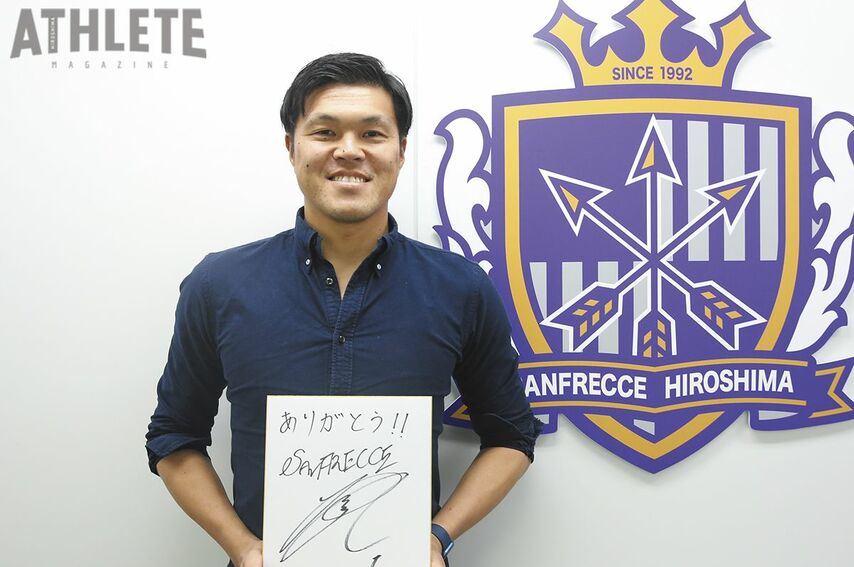 HIROSHIMA
ATHLETE
MAGAZINE
SINCE 1992
ANFRECCE HIROSHIMA
ありがとう!!
SANFRECCE
1